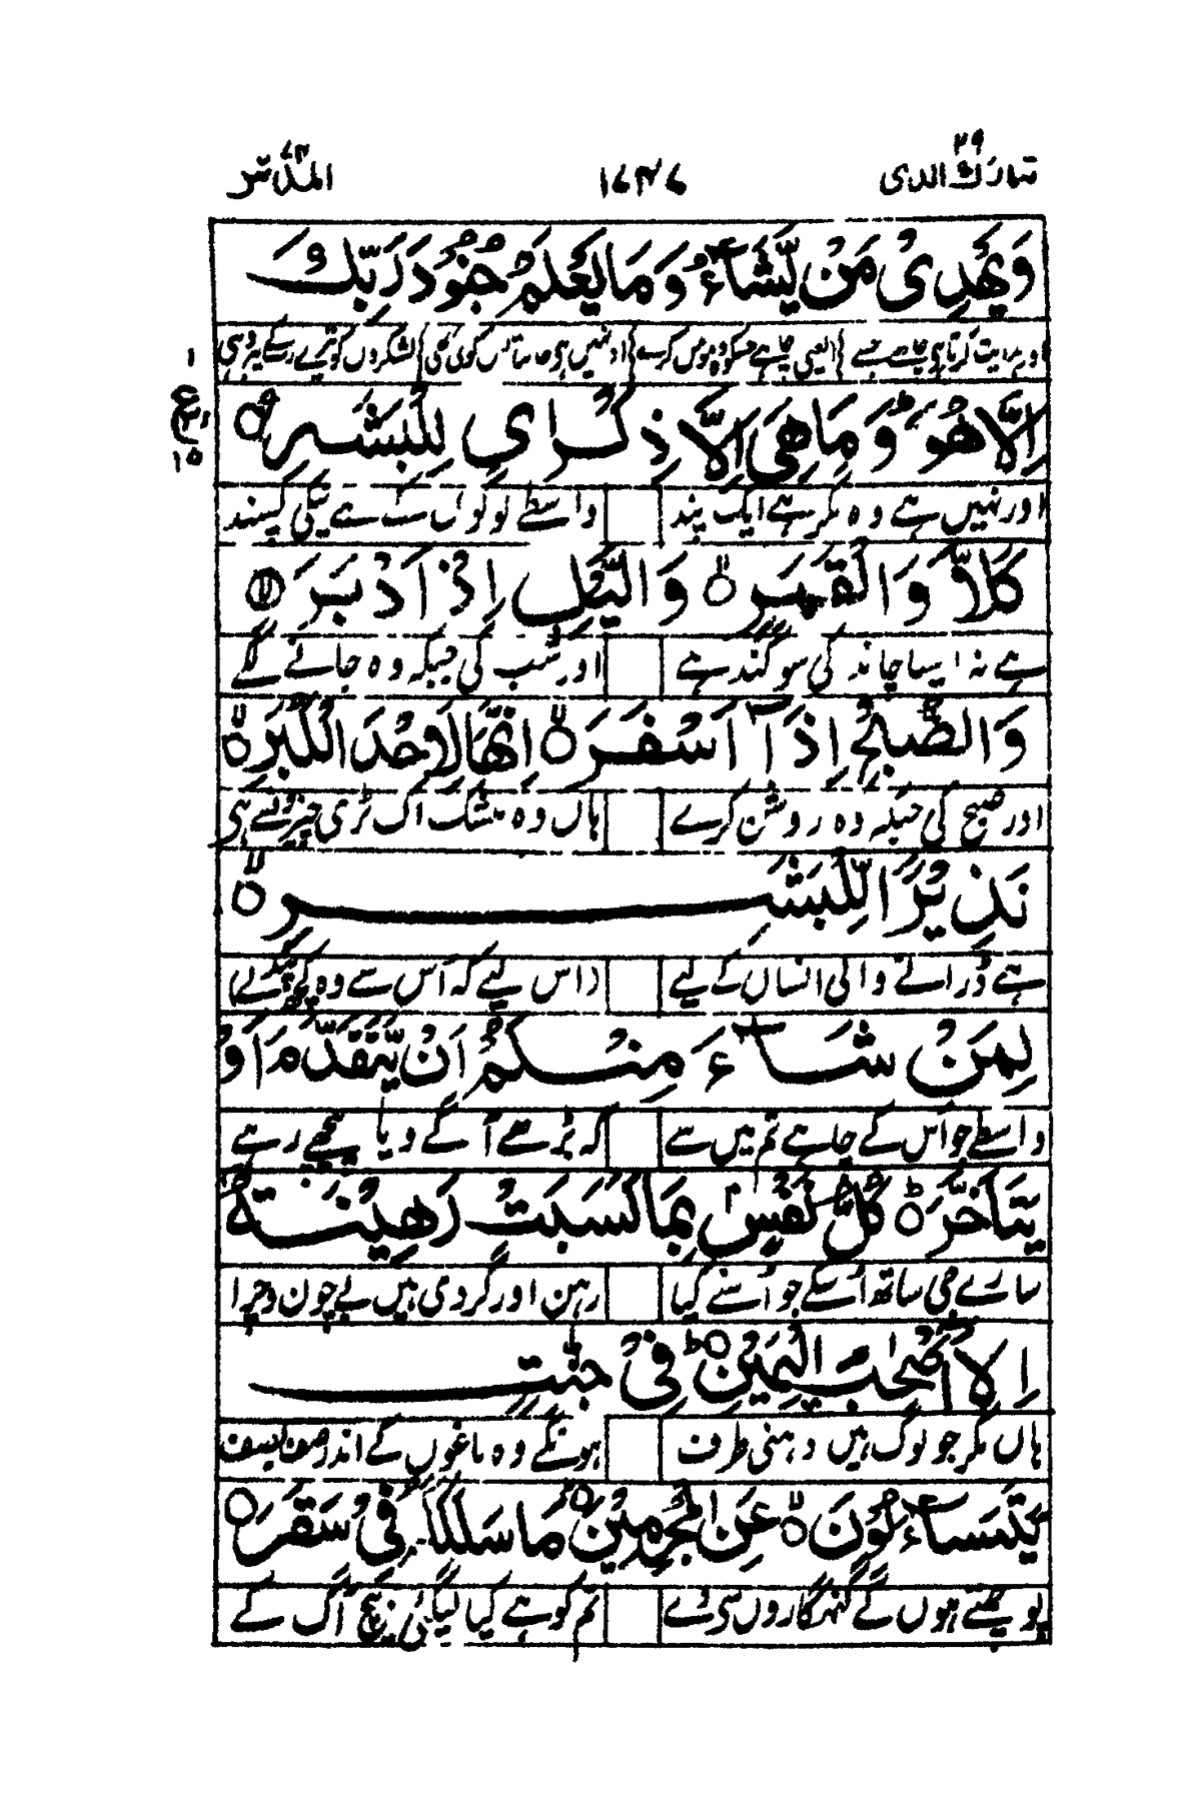 تبارك الذی ۲۹ ۱۷۳۷ المدّثر ۷۴
وَيَهْدِیْ مَنْ يَّشَآءُ وَمَا يَعْلَمُ جُنُوْدَ رَبِّكَ
اور ہدایت کرتا ہے چاہے جسے چاہے اور نہیں ہے کوئی لشکروں کو تیرے رب کے
اِلَّا هُوَ ؕ وَمَا هِیَ اِلَّا ذِكْرٰی لِلْبَشَرِ
اور نہیں ہے وہ مگر ہے ایک پند واسطے لوگوں کے ہے نیکی پسند
كَلَّا وَالْقَمَرِ وَالَّيْلِ اِذْ اَدْبَرَ
ہے نہ ایسا چاند کی سوگند ہے اور شب کی جبکہ وہ جانے لگے
وَالصُّبْحِ اِذَآ اَسْفَرَ اِنَّهَا لَاِحْدَی الْكُبَرِ
اور صبح کی جبکہ وہ روشن کرے ہاں وہ بیشک اک بڑی چیز ہی
نَذِيْرًا لِّلْبَشَرِ
ہے ڈرانے والی انساں کے لیے (اس لیے کہ اس سے وہ
لِمَنْ شَآءَ مِنْكُمْ اَنْ يَّتَقَدَّمَ اَوْ
واسطے جو اس کے چاہے تم میں سے کہ بڑھے آگے و یا پیچھے رہے
يَتَاَخَّرَ كُلُّ نَفْسٍۭ بِمَا كَسَبَتْ رَهِيْنَةٌ
سارے جی ساتھ اُسکے جو اُسنے کیا رہن اور گروی ہیں بے چون و چرا
اِلَّا اَصْحٰبَ الْيَمِيْنِ فِیْ جَنّٰتٍ
ہاں مگر جو لوگ ہیں دہنی طرف ہونگے وہ باغوں کے اندر صف بصف
يَتَسَآءَلُوْنَ عَنِ الْمُجْرِمِيْنَ مَا سَلَكَكُمْ فِیْ سَقَرَ
پوچھتے ہوں گے گنہگاروں سے تم کو ہے کیا لیگیا بیچ آگ کے